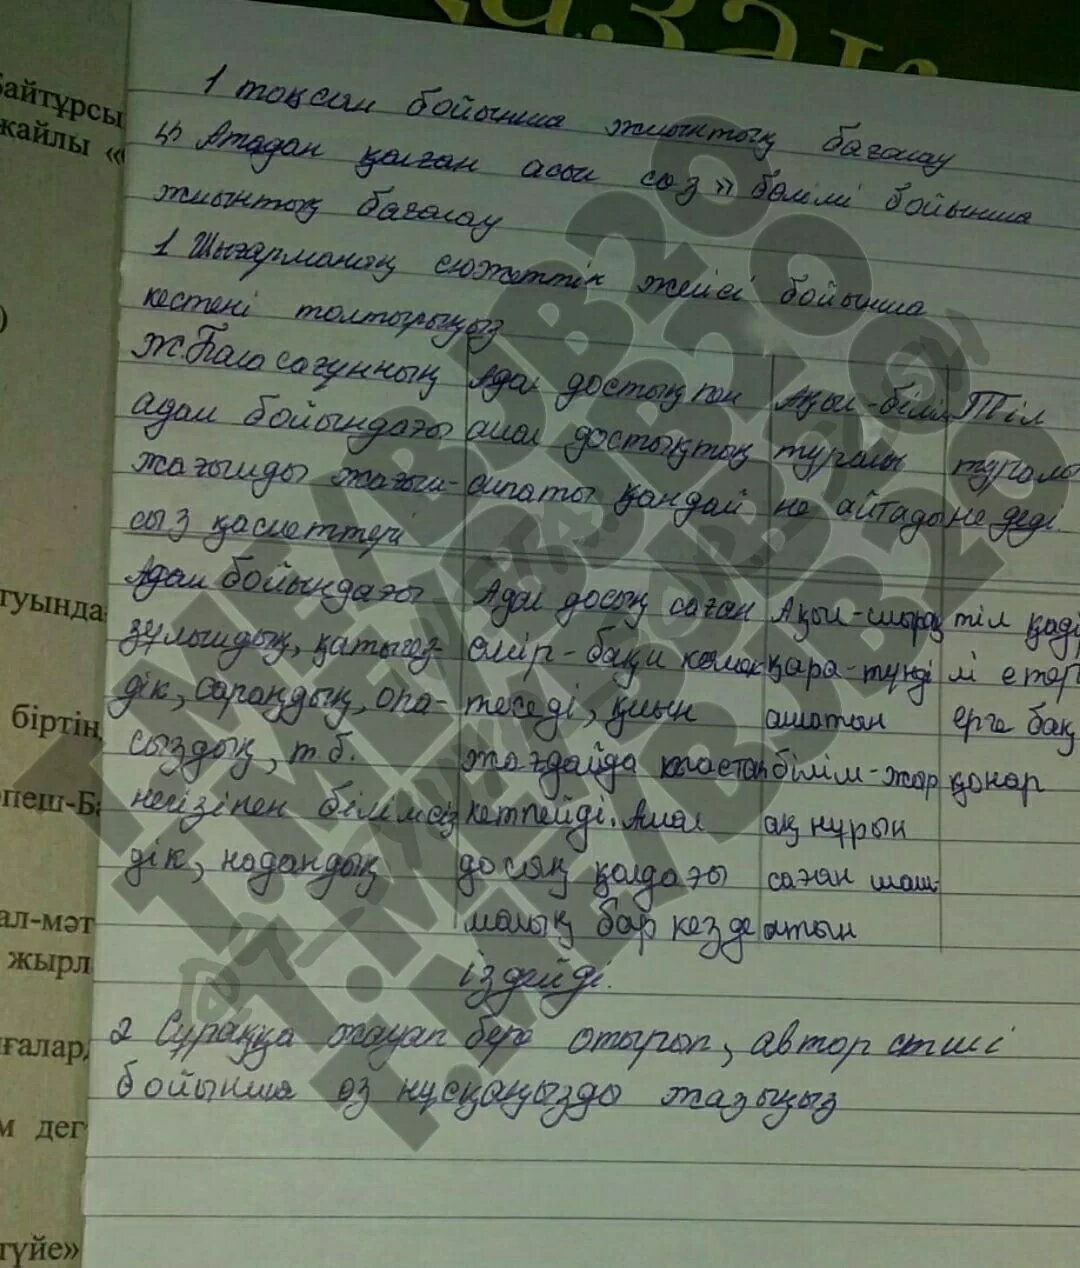 ҚАЗАҚ
Байтұрсы
жайлы «
)
туында
біртін
пеш-Ба
ал-мәт
жырл
ғалар,
м дег
түйе»
1 тоқсан бойынша жиынтық бағалау
« Атадан қалған асыл сөз » бөлімі бойынша
жиынтық бағалау
1 Шығарманың сюжеттік желісі бойынша
кестені толтырыңыз
Ж. Баласағұнның
адам бойындағы
жағымды жағым-
сыз қасиеттері
Адал достық пен
амал достықтың
сипаты қандай
Ақыл-білім
туралы
не айтады
Тіл
турал
не деді
Адам бойындағы
зұлымдық, қатыгез-
дік, сараңдық, опа-
сыздық, т.б.
негізінен білімсіз
дік, надандық
Адал досың саған
өмір-бақи көмек
теседі, қиын
жағдайда тастап
кетпейді. Амал
досың қолдағы
малың бар кезде
іздейді.
Ақыл-шырақ
қара-түнді
ашатын
білім-жар
ақ нұрын
саған шаш-
атын
тіл қаді
лі етеді
ерге бақ
қонар
2 Сұраққа жауап бере отырып, автор стилі
бойынша өз нұсқаңызды жазыңыз
T.ME/BJB20
T.ME/BJB20
T.ME/BJB20
T.ME/BJB20